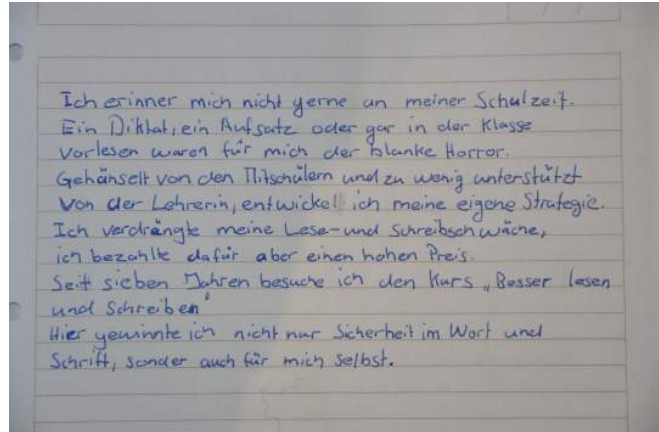 Ich erinner mich nicht gerne an meiner Schulzeit.
Ein Diktat, ein Aufsatz oder gar in der Klasse
Vorlesen waren für mich der blanke Horror.
Gehänselt von den Mitschülern und zu wenig unterstützt
von der Lehrerin, entwickel ich meine eigene Strategie.
Ich verdrängte meine Lese- und Schreibschwäche,
ich bezahlte dafür aber einen hohen Preis.
Seit sieben Jahren besuche ich den Kurs „Besser lesen
und Schreiben"
Hier gewinnte ich nicht nur Sicherheit im Wort und
Schrift, sonder auch für mich selbst.